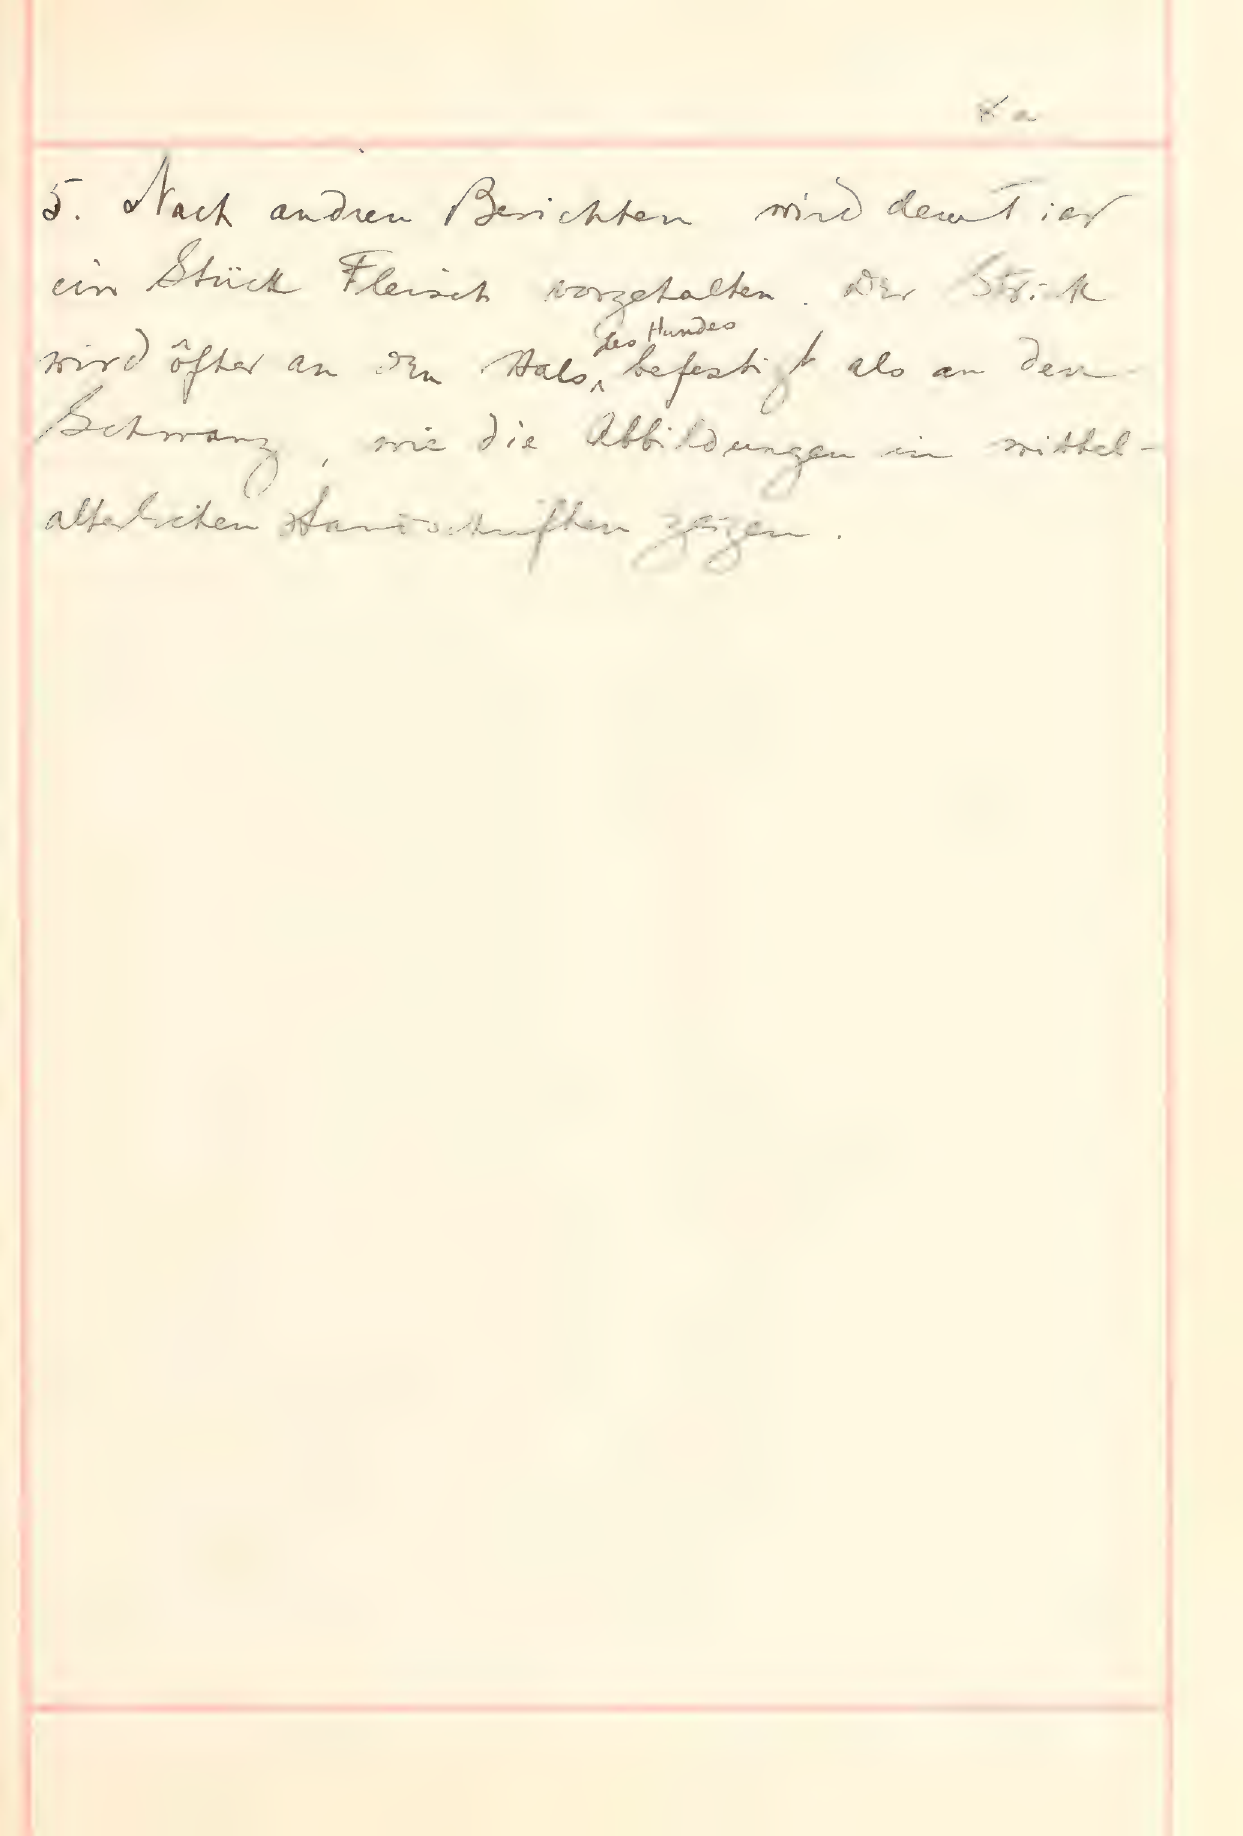 8a
5. Nach andren Berichten wird dem Tier
ein Stück Fleisch vorgehalten. Der Strick
des Hundes
wird öfter an den Hals befestigt als an den
Schwanz, wie die Abbildungen in mittel-
alterlichen Handschriften zeigen.